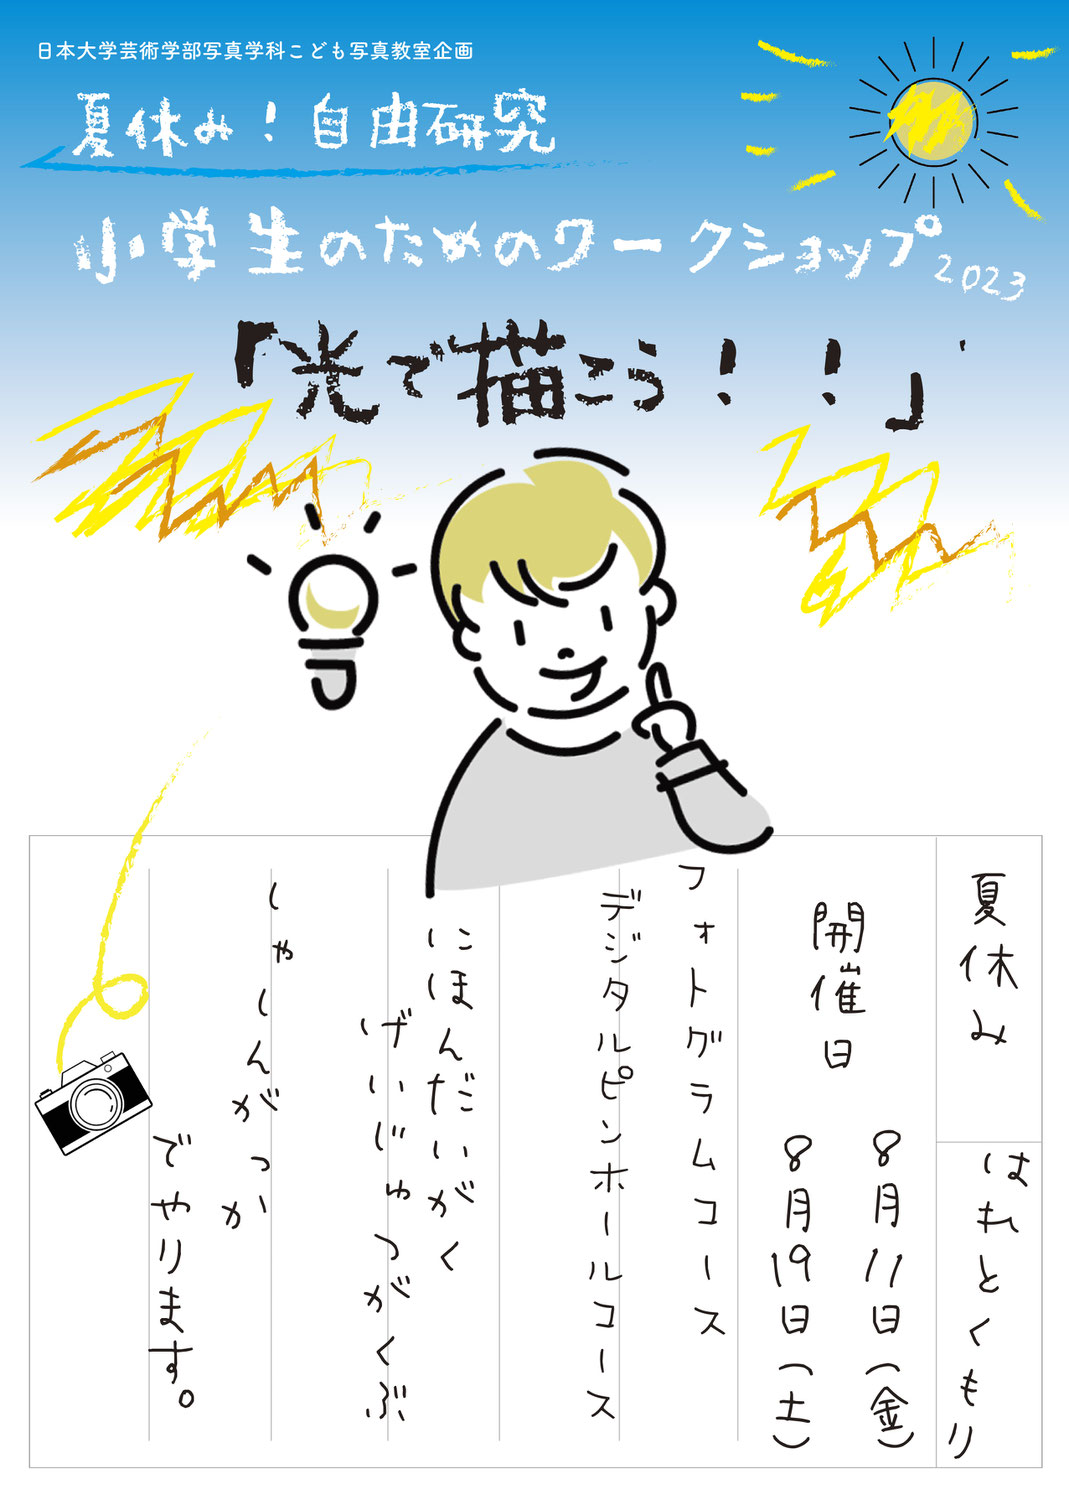 日本大学芸術学部写真学科こども写真教室企画
夏休み！自由研究
小学生のためのワークショップ2023
「光で描こう！！」
夏休み
はれとくもり
開催日
8月11日（金）
8月19日（土）
フォトグラムコース
デジタルピンホールコース
にほんだいがく
げいじゅつがくぶ
しゃしんがっか
でやります。